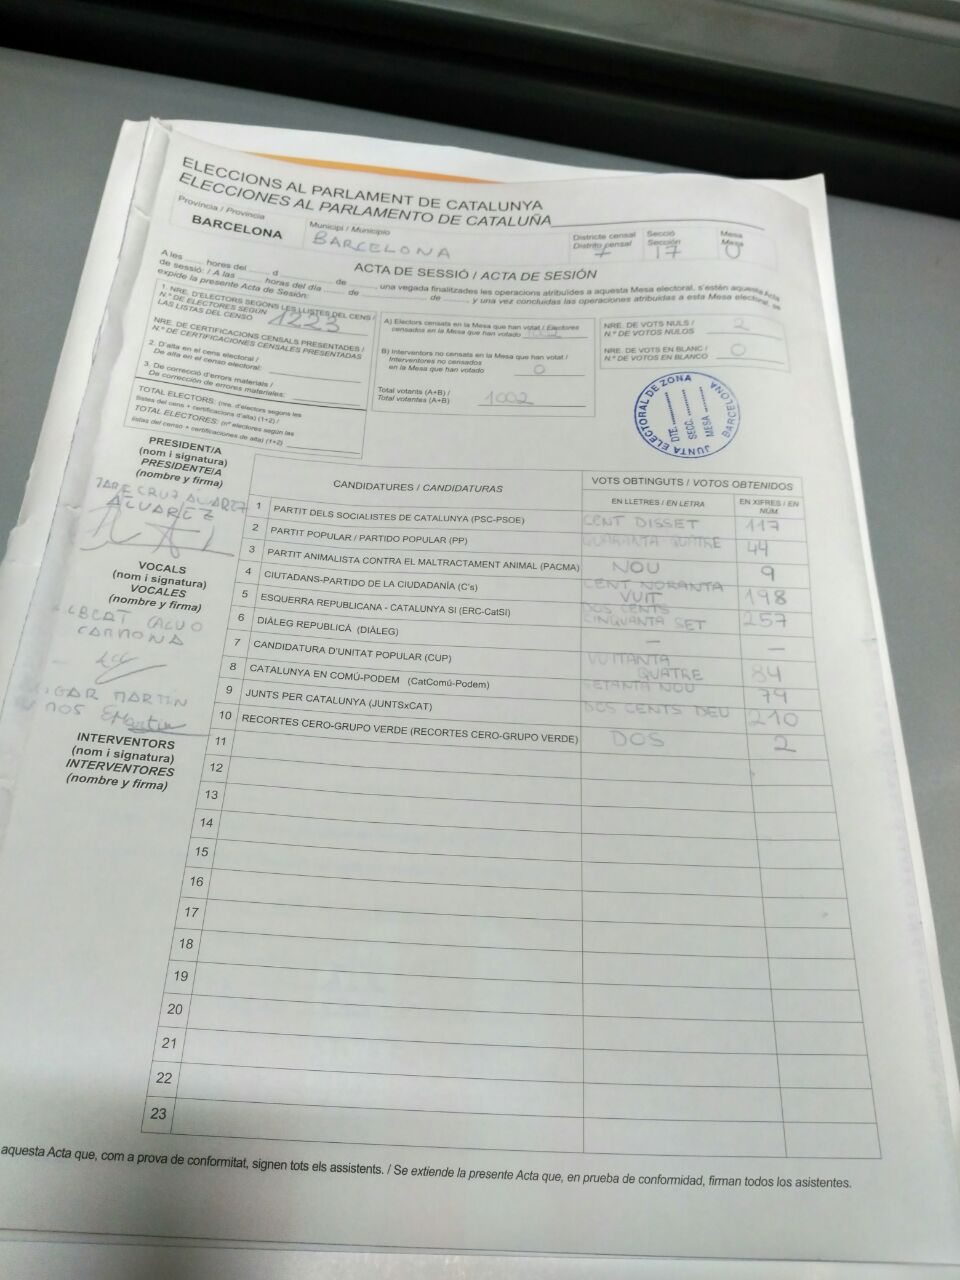 ELECCIONS AL PARLAMENT DE CATALUNYA
ELECCIONES AL PARLAMENTO DE CATALUÑA
Província / Provincia
BARCELONA
Municipi / Municipio
BARCELONA
Districte censal
Distrito censal
7
Secció
Sección
17
Mesa
Mesa
0
ACTA DE SESSIÓ / ACTA DE SESIÓN
A les ...... hores del ...... d ............ de ......, una vegada finalitzades les operacions atribuïdes a aquesta Mesa electoral, s'estén aquesta Acta
de sessió: / A las ...... horas del día ...... de ............ de ......, y una vez concluidas las operaciones atribuidas a esta Mesa electoral, se
expide la presente Acta de Sesión:
1. NRE. D'ELECTORS SEGONS LES LLISTES DEL CENS /
N.º DE ELECTORES SEGÚN
LAS LISTAS DEL CENSO
1223
NRE. DE CERTIFICACIONS CENSALS PRESENTADES /
N.º DE CERTIFICACIONES CENSALES PRESENTADAS
2. D'alta en el cens electoral /
De alta en el censo electoral:
3. De correcció d'errors materials /
De corrección de errores materiales:
TOTAL ELECTORS: (nre. d'electors segons les
llistes del cens + certificacions d'alta) (1+2) /
TOTAL ELECTORES: (nº electores según las
listas del censo + certificaciones de alta) (1+2)
A) Electors censats en la Mesa que han votat / Electores
censados en la Mesa que han votado 1002
B) Interventors no censats en la Mesa que han votat /
Interventores no censados
en la Mesa que han votado 0
Total votants (A+B) /
Total votantes (A+B) 1002
NRE. DE VOTS NULS /
N.º DE VOTOS NULOS 2
NRE. DE VOTS EN BLANC /
N.º DE VOTOS EN BLANCO 0
JUNTA ELECTORAL DE ZONA
BARCELONA
DTE.
SECC.
MESA
PRESIDENT/A
(nom i signatura)
PRESIDENTE/A
(nombre y firma)
CRUZ ALVAREZ
ALVAREZ
VOCALS
(nom i signatura)
VOCALES
(nombre y firma)
CALVO
CARMONA
MARTÍN
INTERVENTORS
(nom i signatura)
INTERVENTORES
(nombre y firma)
CANDIDATURES / CANDIDATURAS
VOTS OBTINGUTS / VOTOS OBTENIDOS
EN LLETRES / EN LETRA
EN XIFRES / EN NÚM
1 PARTIT DELS SOCIALISTES DE CATALUNYA (PSC-PSOE) CENT DISSET 117
2 PARTIT POPULAR / PARTIDO POPULAR (PP) QUARANTA QUATRE 44
3 PARTIT ANIMALISTA CONTRA EL MALTRACTAMENT ANIMAL (PACMA) NOU 9
4 CIUTADANS-PARTIDO DE LA CIUDADANÍA (C's) CENT NORANTA VUIT 198
5 ESQUERRA REPUBLICANA - CATALUNYA SI (ERC-CatSí) DOS CENTS CINQUANTA SET 257
6 DIÀLEG REPUBLICÀ (DIÀLEG) — —
7 CANDIDATURA D'UNITAT POPULAR (CUP) VUITANTA QUATRE 84
8 CATALUNYA EN COMÚ-PODEM (CatComú-Podem) SETANTA NOU 79
9 JUNTS PER CATALUNYA (JUNTSxCAT) DOS CENTS DEU 210
10 RECORTES CERO-GRUPO VERDE (RECORTES CERO-GRUPO VERDE) DOS 2
11
12
13
14
15
16
17
18
19
20
21
22
23
aquesta Acta que, com a prova de conformitat, signen tots els assistents. / Se extiende la presente Acta que, en prueba de conformidad, firman todos los asistentes.